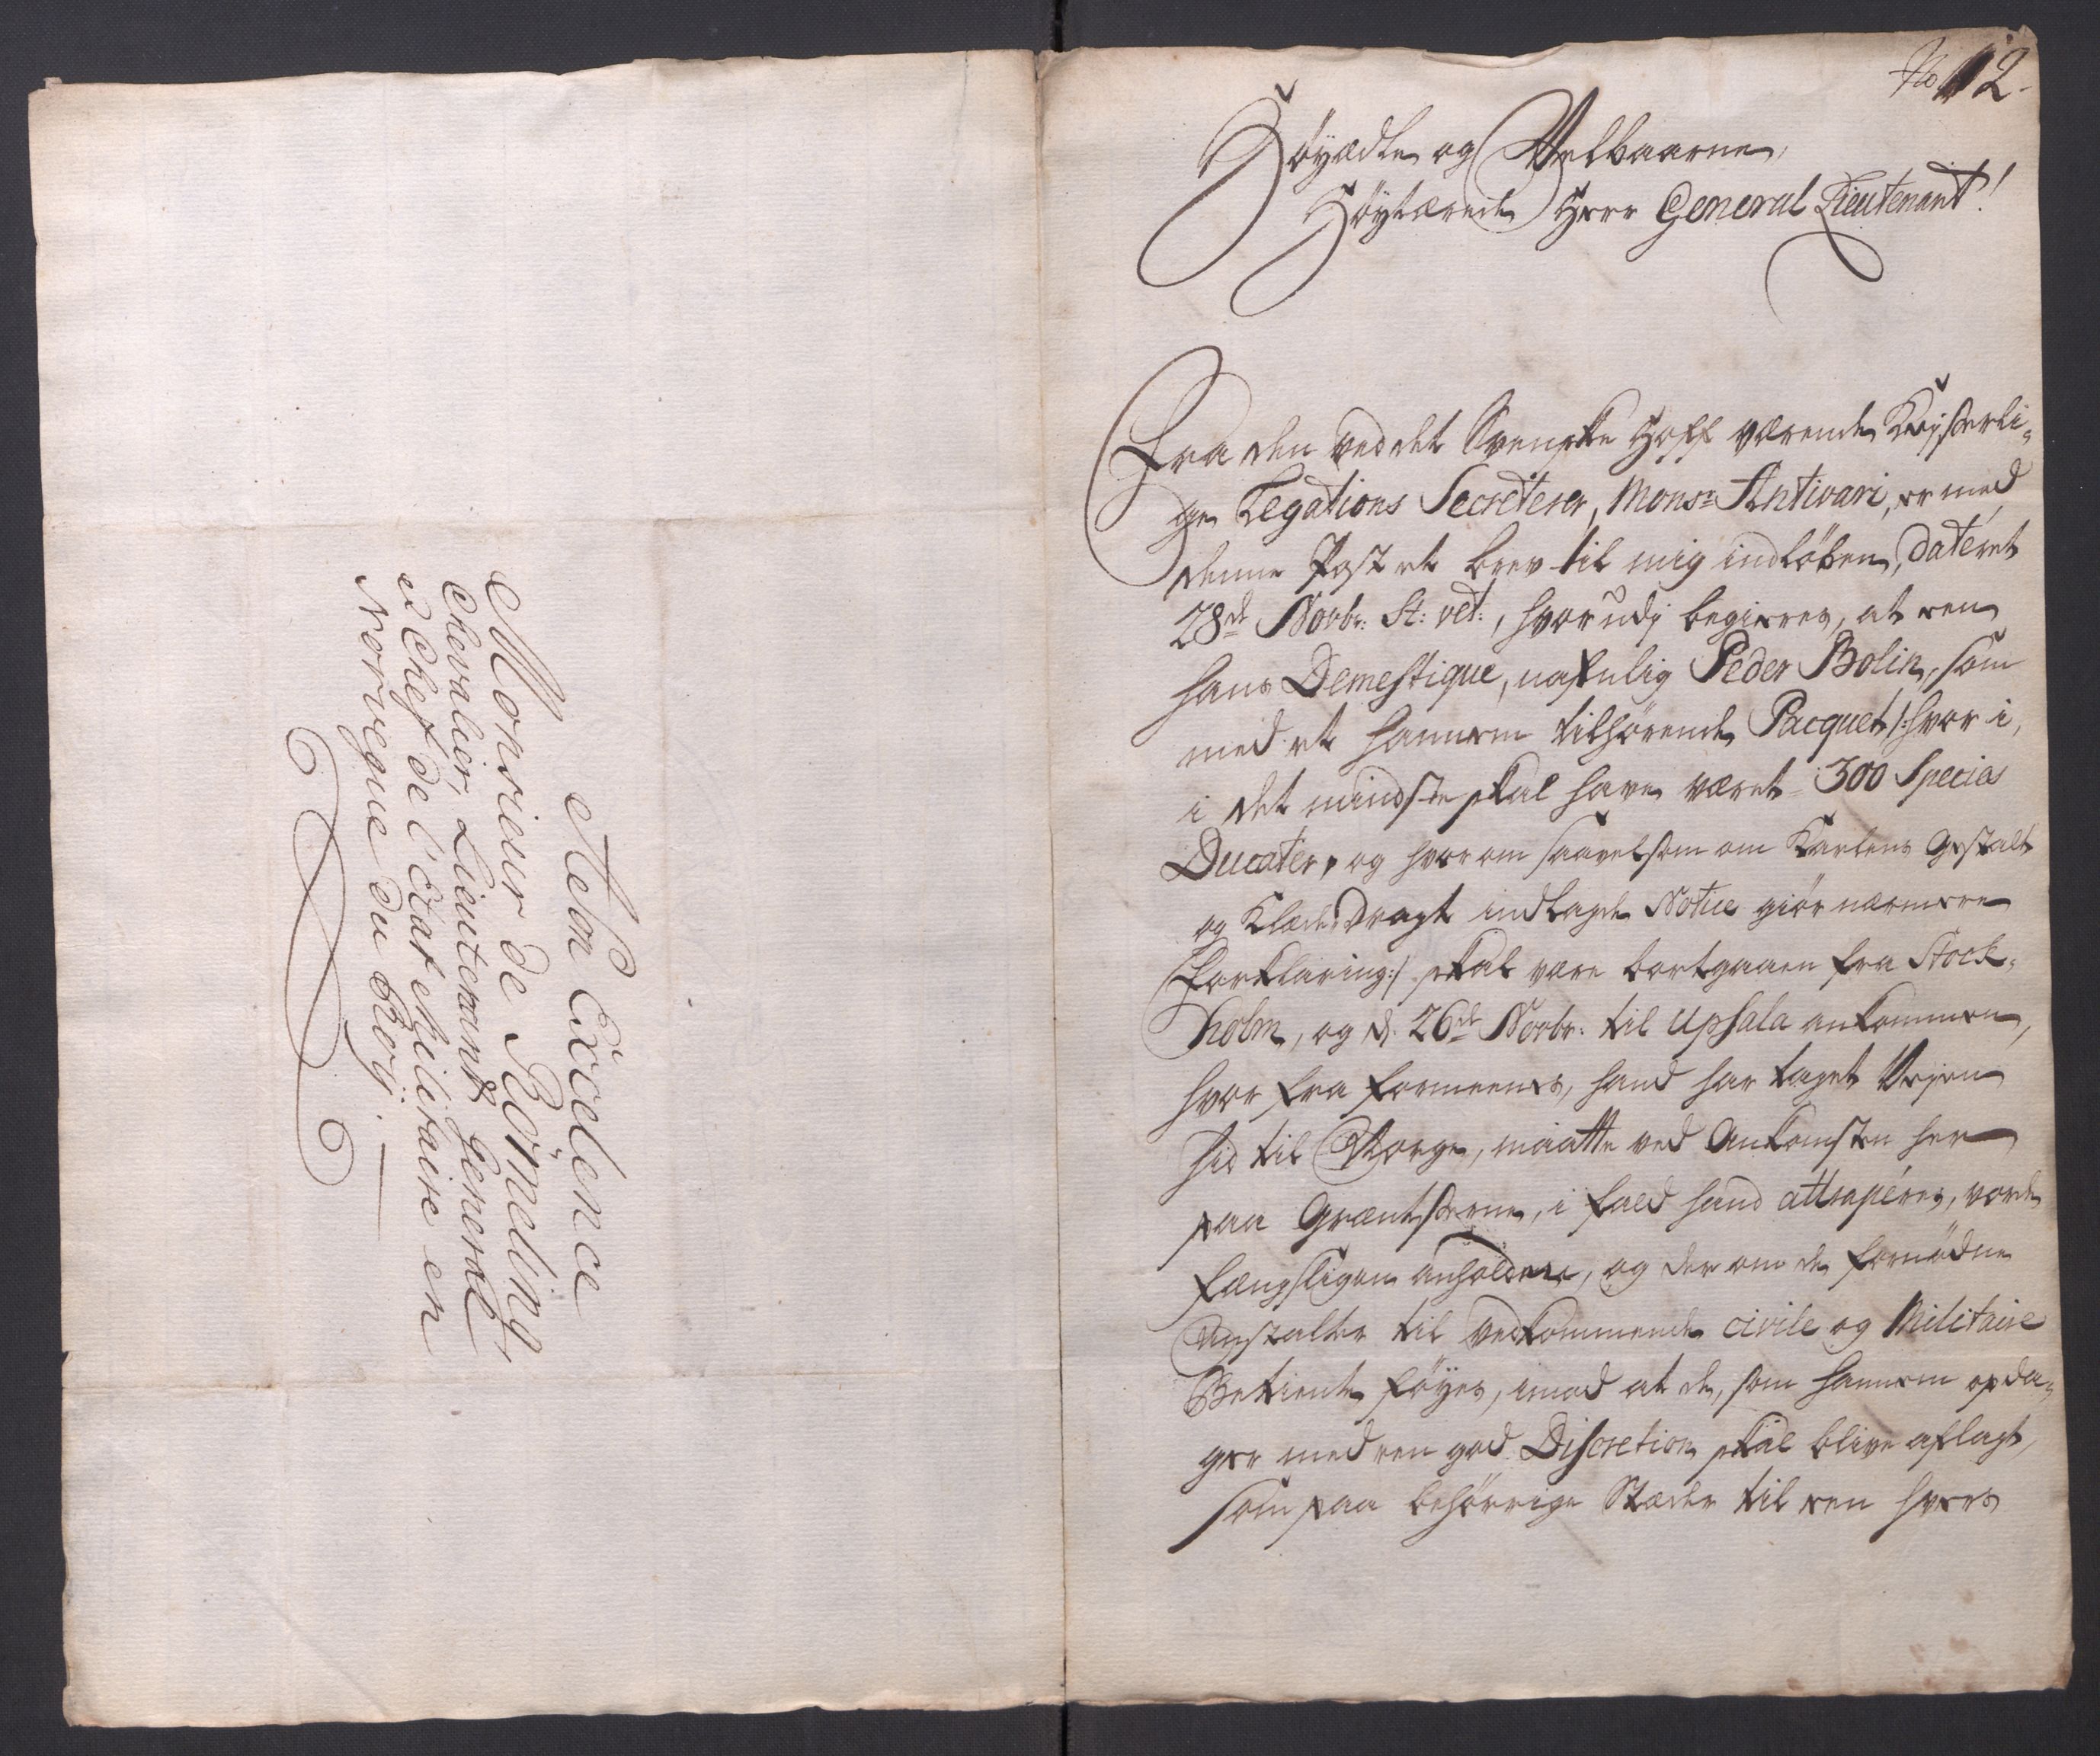 A Son Excelence
Monsieur de Römeling,
Chevalier, Lieutenant General
et Chef de l'état Militaire en
Norvegue du Roy.
No 12.
Høyædle og Velbaarne,
Høytærede Herr General Lieutenant!
Fra den ved det Svenske Hoff værende Kejserli-
ge Legations Secreterer, Monsr: Antivari, er med
denne Post et brev til mig indløben, dateret
28de Novbr: St: vet:, hvorudj begieres, at een
hans Demestique, nafnlig Peder Bolin, som
med et hannem tilhørende Pacquet /:hvor i,
i det mindste skal have været 300 Species
Ducater, og hvorom saavelsom om Karlens Gestalt
og Klædedragt indlagde Notice giør nærmere
Forklaring:/ skal være bortgaaen fra Stock-
holm, og d. 26de Novbr: til Upsala ankommen,
hvor fra formeenes, hand har taget Vejen
hid til Norge, maatte ved Ankomsten her
paa Grændserne, i fald hand attraperes, vorde
fængsligen anholden, og derom de fornødne
Anstalter til vedkommende civile og Militaire
Betiente føyes, imod at de, som hannem opda-
ger med een god Discretion skal blive aflagt,
som paa behørrige Stæder til een hvers